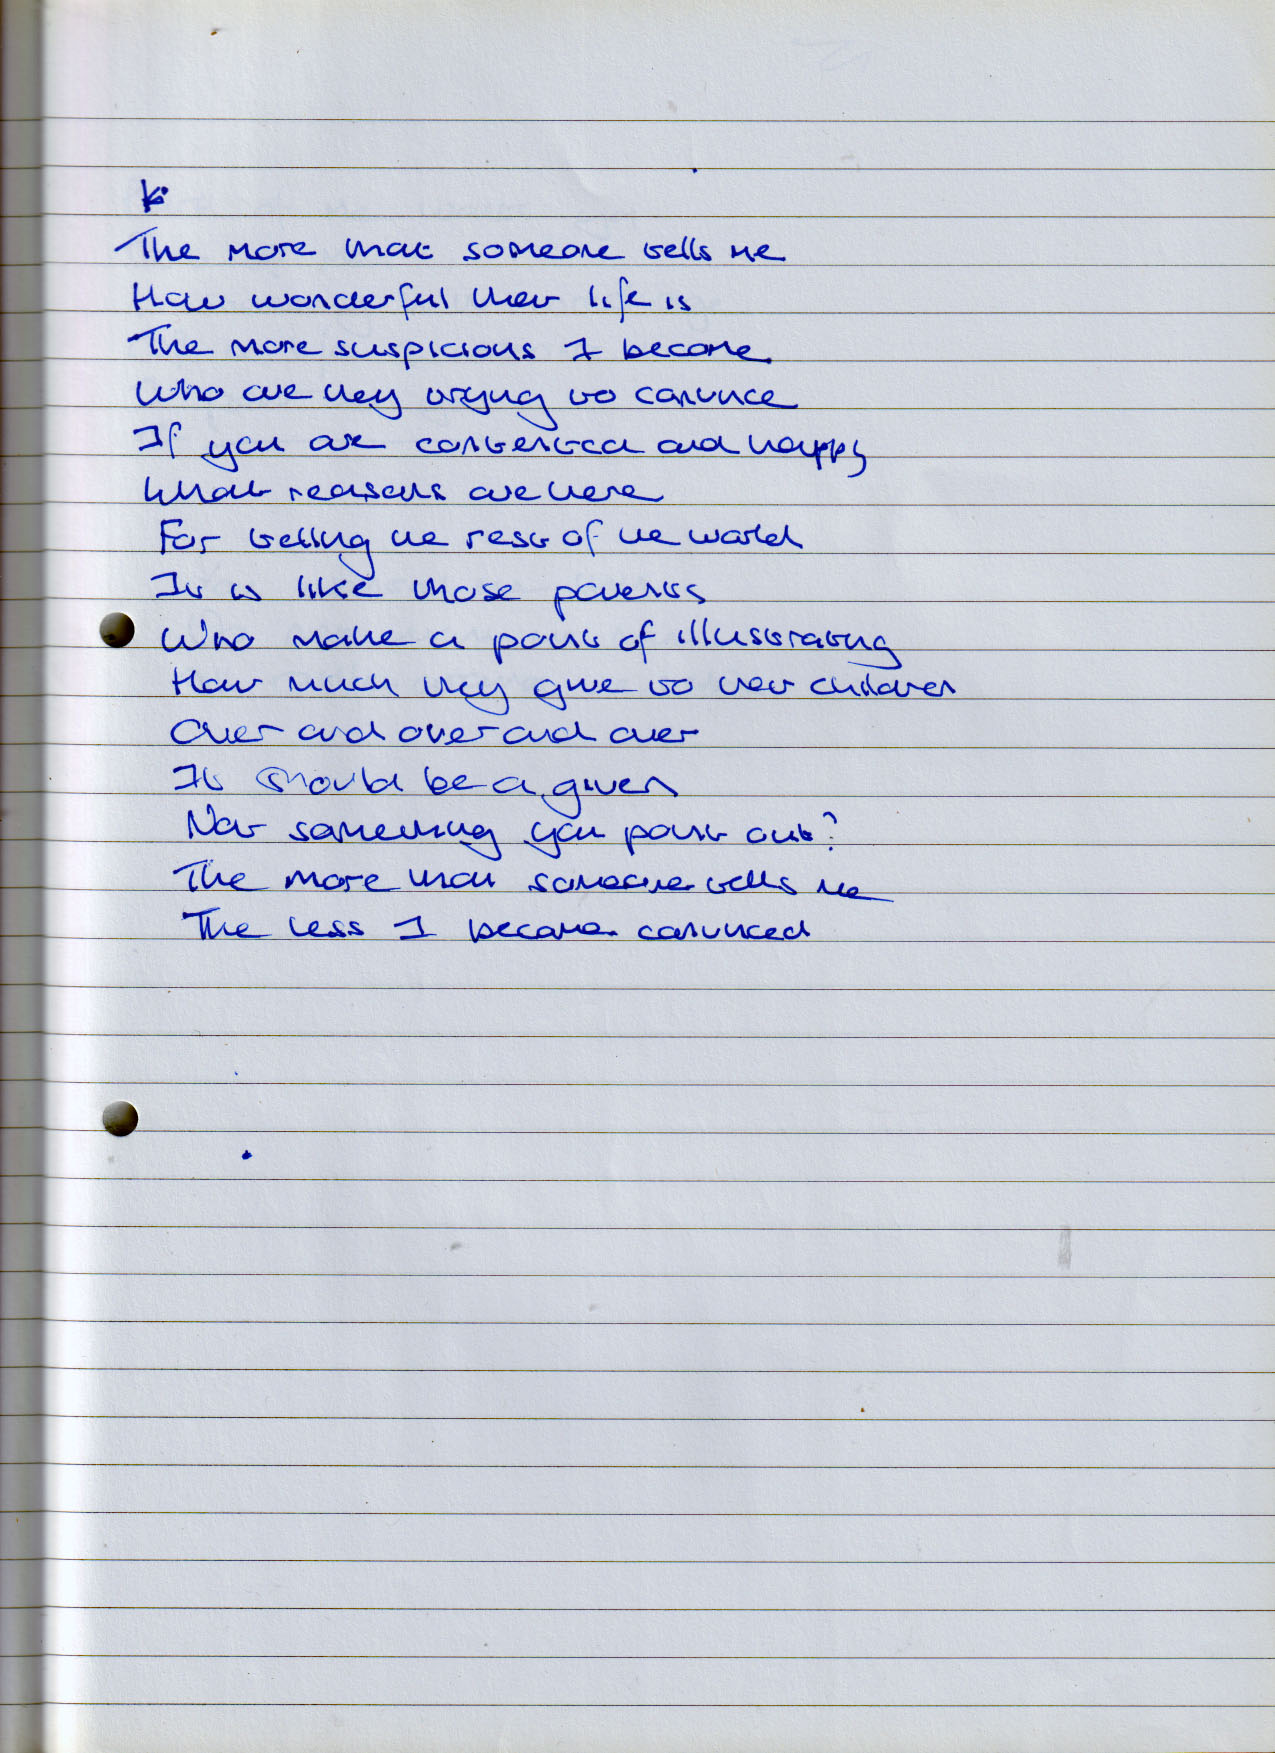 The more that someone tells me
How wonderful their life is
The more suspicious I become
Who are they trying to convince
If you are contented and happy
What reasons are there
For telling the rest of the world
It is like those parents
Who make a point of illustrating
How much they give to their children
Over and over and over
It should be a given
Not something you point out?
The more that someone tells me
The less I become convinced